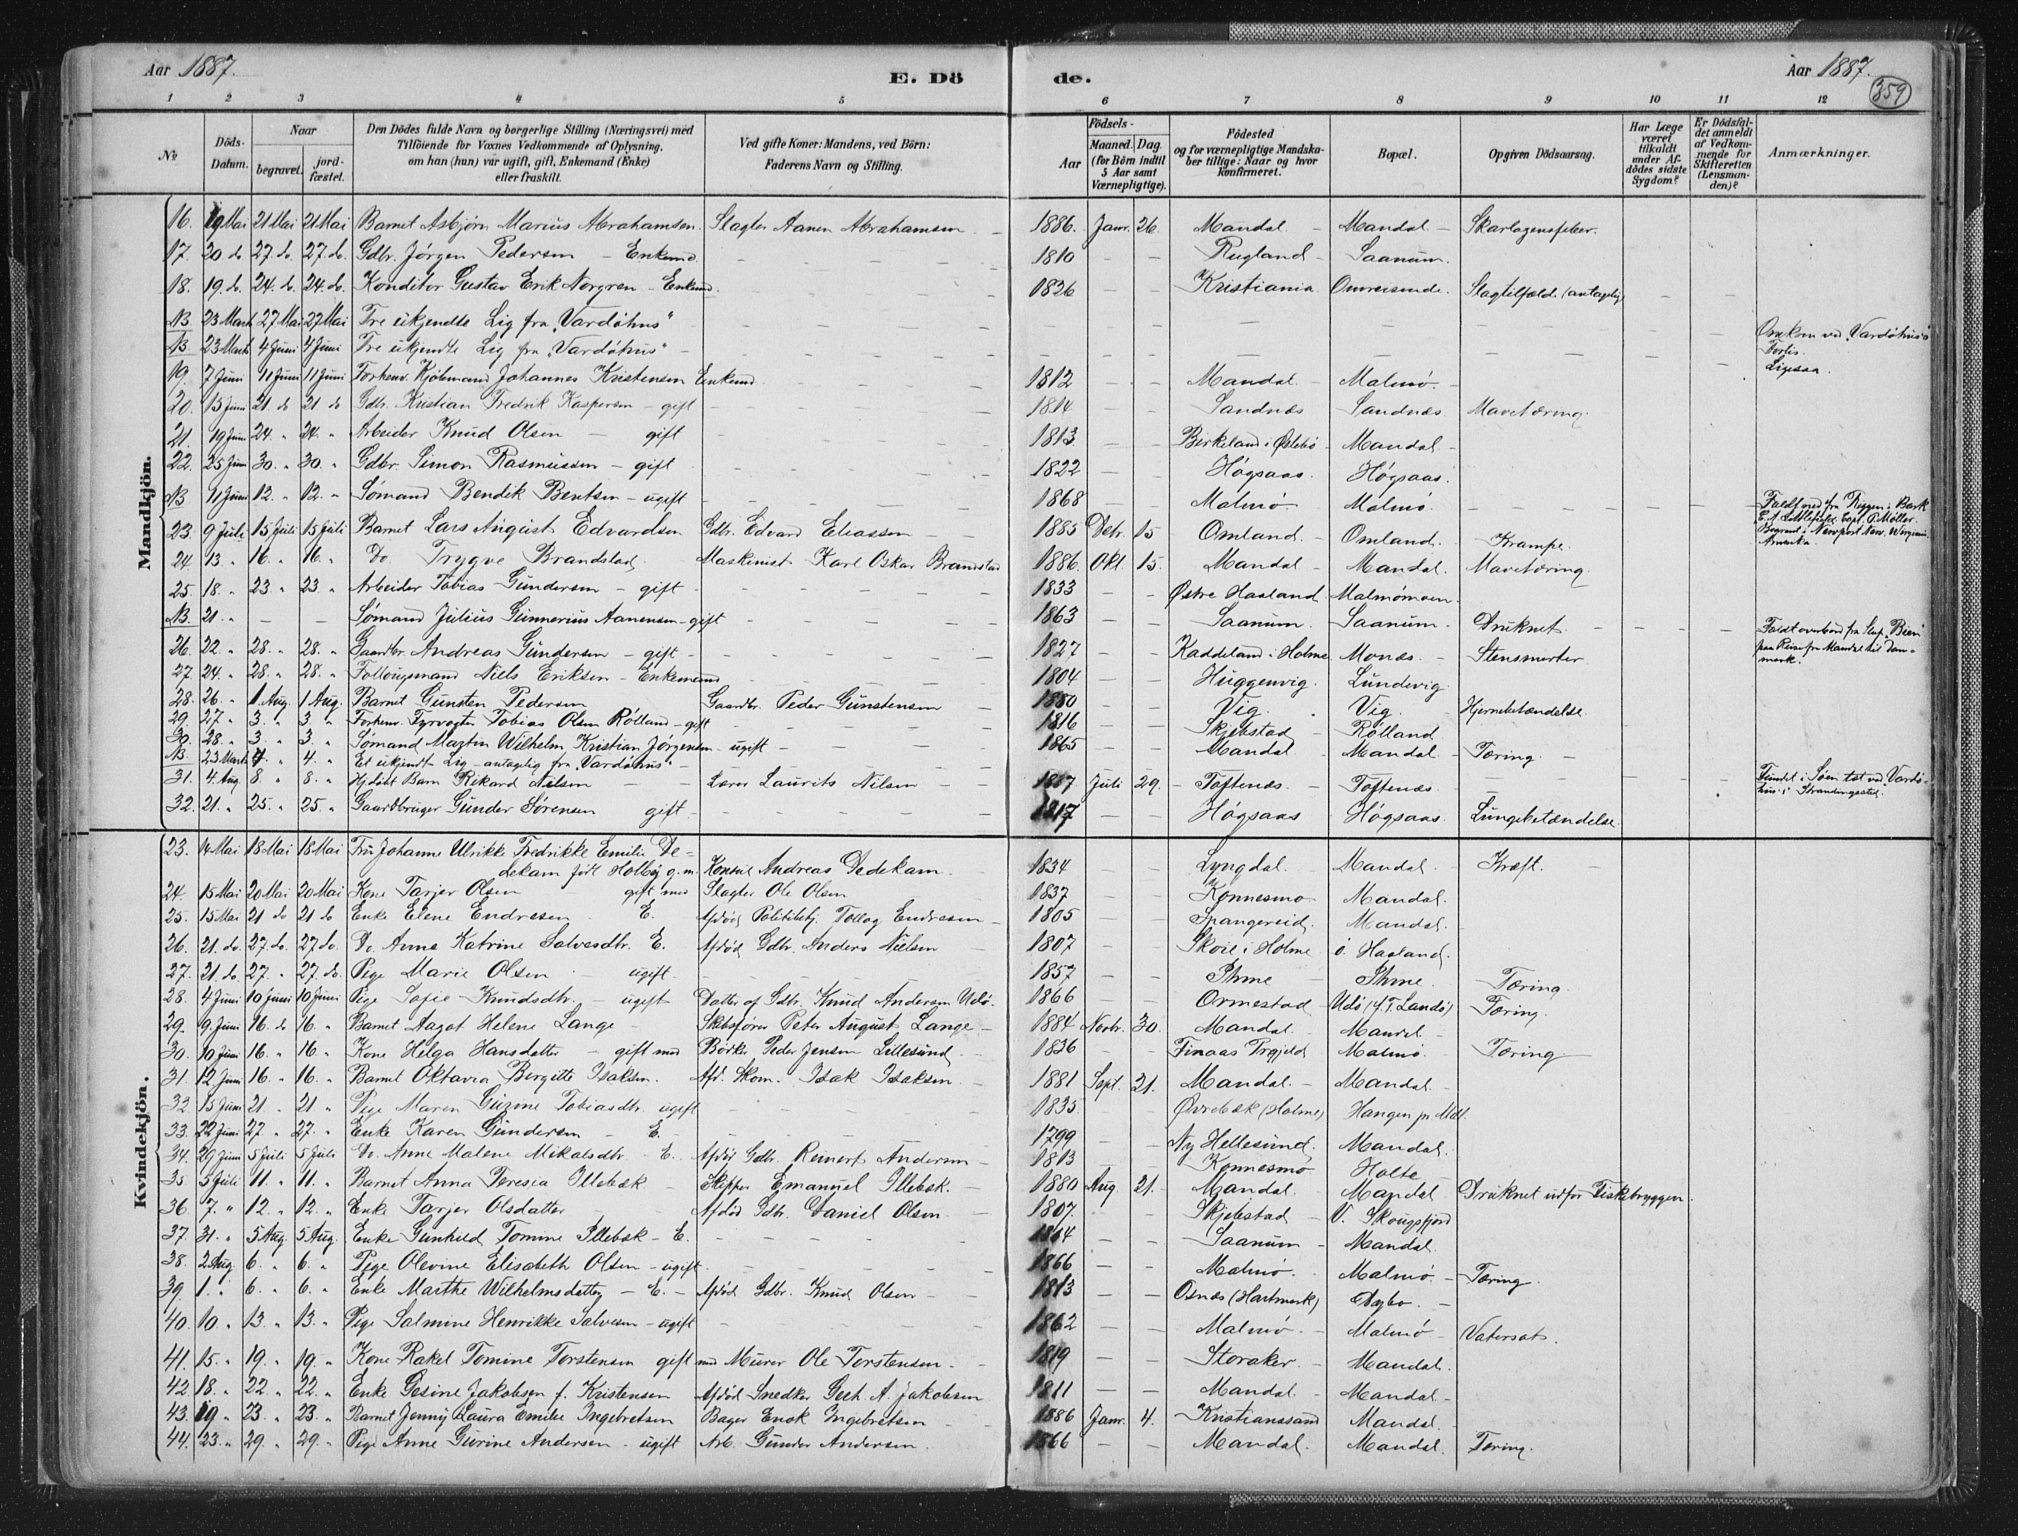 Aar 1887.
E. Dö
de.
Aar 1887.
359
1 2 3 4 5 6 7 8 9 10 11 12
No. Döds-Datum. Naar begravet. jord-fæstet. Den Dödes fulde Navn og borgerlige Stilling (Næringsvei) med Tilföiende for Voxnes Vedkommende af Oplysning, om han (hun) var ugift, gift, Enkemand (Enke) eller fraskilt. Ved gifte Koner: Mandens, ved Börn: Faderens Navn og Stilling. Födsels- Aar Maaned. Dag. (for Börn indtil 5 Aar samt Værnepligtige). Födested og for værnepligtige Mandskaber tillige: Naar og hvor konfirmeret. Bopæl. Opgiven Dödsaarsag. Har Læge været tilkaldt under Afdödes sidste Sygdom? Er Dödsfaldet anmeldt af Vedkommende for Skifteretten (Lensmanden)? Anmærkninger.
Mandkjön.
16. 19 Mai 21 Mai 21 Mai Barnet Asbjørn Marius Abrahamsen. Slagter Aanen Abrahamsen 1886. Janr. 26. Mandal Mandal Skarlagensfeber.
17. 20 do 27 do. 27 do. Gdbr. Jørgen Pedersen – Enkemd. 1810 Rugland Saanum.
18. 19 do. 24 do. 24 do. Konditor Gustav Erik Norgren – Enkemd. 1826 Kristiania Omreisende. Slagtilfælde (antagelig)
NB. 23 Marts 27 Mai 27 Mai Tre ukjendte Lig fra „Vardøhus"
NB. 23 Marts 4 Juni 4 Juni Tre ukjendte Lig fra „Vardøhus" Omkom ved „Vardøhus's" Forlis.
19. 7 Juni 11 Juni 11 Juni Forhenv. Kjøbmand Johannes Kristensen Enkemd. 1812 Mandal Malmø. Ligesaa.
20. 15 Juni 21 do 21 do Gdbr. Kristian Fredrik Kaspersen – gift 1814 Sandnæs Sandnæs Mavetæring.
21. 19 Juni 24. " 24. " Arbeider Knud Olsen – gift 1813. Birkeland i Øslebø Mandal
22. 25 Juni 30. " 30. " Gdbr. Simon Rasmussen – gift 1822 Høgsaas. Høgsaas.
NB 11 Juni 12. " 12. " Sømand Bendik Bentsen – ugift 1868 Malmø Malmø. Faldt ned fra Riggen i Bark
23. 9 Juli 15 Juli 15 Juli Barnet Lars August Edvardsen Gdbr. Edvard Eliassen 1885 Debr. 15 Omland. Omland. Krampe. Begravet i Newport News, Virginien Amerika.
24 13. " 16. " 16. " Do Trygve Brandstad Maskinist Karl Oskar Brandstad 1886. Okt. 15. Mandal Mandal. Mavetæring.
25. 18. " 23. " 23. " Arbeider Tobias Gundersen – gift 1833 Østre Haaland Malmømoen.
NB. 21 " Sømand Julius Gunnerius Aanensen – gift 1863 Saanum. Saanum. Druknet Faldt overbord fra Slup „Bien"
26. 22 " 28. " 28. " Gaardbr. Andreas Gundersen – gift 1827 Kaddeland i Holme Monæs. Stensmerter paa Reise fra Mandal til Danmark.
27 24. " 28 " 28. " Follougsmand Niels Eriksen – Enkemand 1804 Huggenvig. Lundevig
28. 26. " 1 Aug. 1 Aug. Barnet Gunsten Pedersen Gaardbr. Peder Gunstensen 1880 Vig Vig. Hjernebetændelse
29. 27 " 3. " 3 " Forhenv. Fyrvogter Tobias Olsen Rølland – gift 1816 Skjebstad Rølland.
30. 28 " 3. " 3. " Sømand Martin Wilhelm Kristian Jørgensen – ugift 1865 Mandal Mandal Tæring.
NB 23 Marts 4 " 4. " Et ukjendt Lig – antagelig fra „Vardøhus"
31. 4 Aug 8 " 8. " Hj.døbt Barn Rikard Nilsen Lærer Laurits Nilsen 1887 Juli 29. Toftenæs. Toftenæs Fundet i Søen tæt ved Vardøhus's Strandingssted.
32. 21. " 25. " 25. " Gaardbruger Gunder Sørensen gift. 1817 Høgsaas Høgsaas. Lungebetændelse.
Kvindekjön.
23. 14 Mai 18 Mai 18 Mai Fru Johanne Ulrikke Fredrikke Emilie Dedekam født Holby g. m. Konsul Andreas Dedekam. 1834 Lyngdal Mandal. Kræft.
24. 15 Mai 20 Mai 20 Mai Kone Tarjer Olsen gift med Slagter Ole Olsen 1837 Konnesmo Mandal.
25. 15 Mai 21 do 21 do Enke Elene Endresen E. Afdød Politibtj. Tollag Endresen 1805 Spangereid. Mandal.
26. 21 do. 27 do. 27 do. Do. Anne Katrine Salvesdtr. E. Afdød Gdbr. Anders Nielsen 1807 Skoie i Holme ø. Haaland.
27. 21 do 27. " 27. do. Pige Marie Olsen ugift. 1857 Ihme Ihme. Tæring.
28. 4 Juni 10 Juni 10 Juni Pige Sofie Knudsdtr. – ugift Datter af Gdbr. Knud Andersen Udø. 1866 Ormestad Udø (f. T. Landø) Tæring.
29. 9 Juni 16. do 16. " Barnet Aagot Helene Lange Skibsfører Peter August Lange 1884 Novbr. 30. Mandal Mandal.
30. 10 Juni 16. " 16. " Kone Helga Hansdatter gift med Peder Jensen Lillesund. 1836 Finaas Prgjeld Malmø. Tæring
31. 12 Juni 16. " 16. " Barnet Oktavia Bergitte Isaksen. Afd. Skom. Isak Isaksen 1881 Sept. 21. Mandal Mandal.
32 15 Juni 21 " 21. " Pige Maren Gurine Tobiasdtr. ugift 1835. Øvrebæk (Holme) Hangen pr. Mdl.
33. 22 Juni 27 " 27. " Enke Karen Gundersen E. 1799 Ny Hellesund. Mandal.
34. 29 Juni 5 Juli 5 Juli Do. Anne Malene Mikalsdtr. E. Afdød Gdbr. Reinert Andersen 1813 Konnesmo Holte
35 5 Juli 11. " 11. " Barnet Anna Teresia Illebæk Skipper Emanuel Illebæk. 1880 Aug 21. Mandal Mandal Druknet udfor Fiskebryggen.
36. 7. " 12. " 12. " Enke Tarjer Olsdatter Afdød Gdbr. Daniel Olsen 1807. Skjebstad V. Skougsfjord
37. 31. " 5 Aug 5 Aug. Enke Gunhild Tomine Illebæk – E. 1864 Saanum Mandal
38. 2 Aug 6. " 6. " Pige Olevine Elisabeth Olsen – ugift 1866 Malmø. Malmø. Tæring.
39 1. " 6 " 6. " Enke Marthe Wilhelmsdatter – E. Afdød Gdbr. Knud Olsen 1813 Osnæs (Hartmark) Agbo.
40. 10 " 13. " 13. " Pige Salmine Henrikke Salvesen – ugift 1862 Malmø. Malmø Vatersot.
41. 15. " 19. " 19. " Kone Rakel Tomine Torstensen gift med Murer Ole Torstensen. 1819 Storaker Mandal.
42 18. " 22. " 22. " Enke Gesine Jakobsen f. Kristensen Afdød Snedker Gerh. A. Jakobsen 1811 Mandal. Mandal.
43. 19 " 23. " 23. " Barnet Jenny Laura Emilie Ingebretsen Bager Enok Ingebretsen 1886 Janr. 4. Kristianssand Mandal.
44. 23. " 29. " 29. " Pige Anne Gurine Andersen – ugift Arb. Gunder Andersen. 1866 Mandal. Mandal. Tæring.